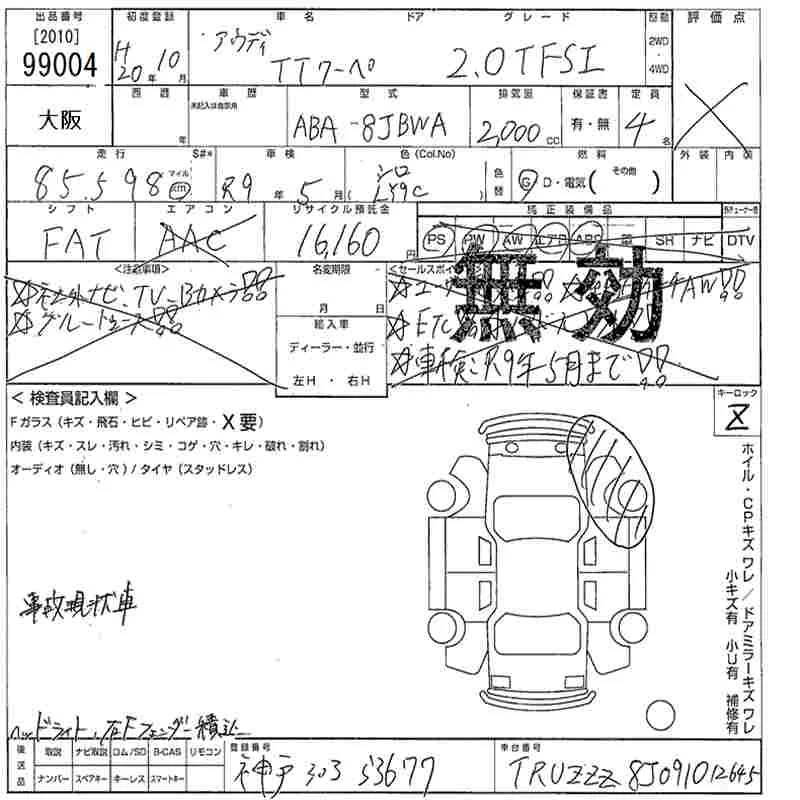 出品番号 初度登録 車名 ドア グレード 駆動 評価点
[2010] 99004 H20年10月 アウディ TTクーペ 2.0TFSI 2WD・4WD
大阪 西暦 年 車歴 未記入は自家用 型式 ABA-8JBWA 排気量 2,000cc 保証書 有・無 定員 4名
走行 S#* 車検 色(Col.No) 燃料 外装 内装
85,598 マイル km R9年5月 (シロ LY9C) 色替 G・D・電気( その他 )
シフト エアコン リサイクル預託金 純正装備品
FAT AAC 16,160円 PS PW AW エアB ABS 革 SR ナビ DTV
<注意事項> 名変期限 <セールスポイ
☆社外ナビ、TV、Bカメラ 月 日
輸入車 ☆ETC
ディーラー・並行 無効
左H・右H ☆車検:R9年5月まで
<検査員記入欄> キーロック
Fガラス(キズ・飛石・ヒビ・リペア跡・X要) Z
内装(キズ・スレ・汚れ・シミ・コゲ・穴・キレ・破れ・割れ)
オーディオ(無し・穴)/タイヤ(スタッドレス)
ホイル・CPキズ ワレ/ドアミラーキズ ワレ
小キズ有 小U有 補修有
事故現状車
ヘッドライト、右Fフェンダー積込
後送品 取説 ナビ取説 ロム/SD B-CAS リモコン 登録番号 車台番号
ナンバー スペアキー キーレス スマートキー 神戸 303 53677 TRUZZZ8J091012645